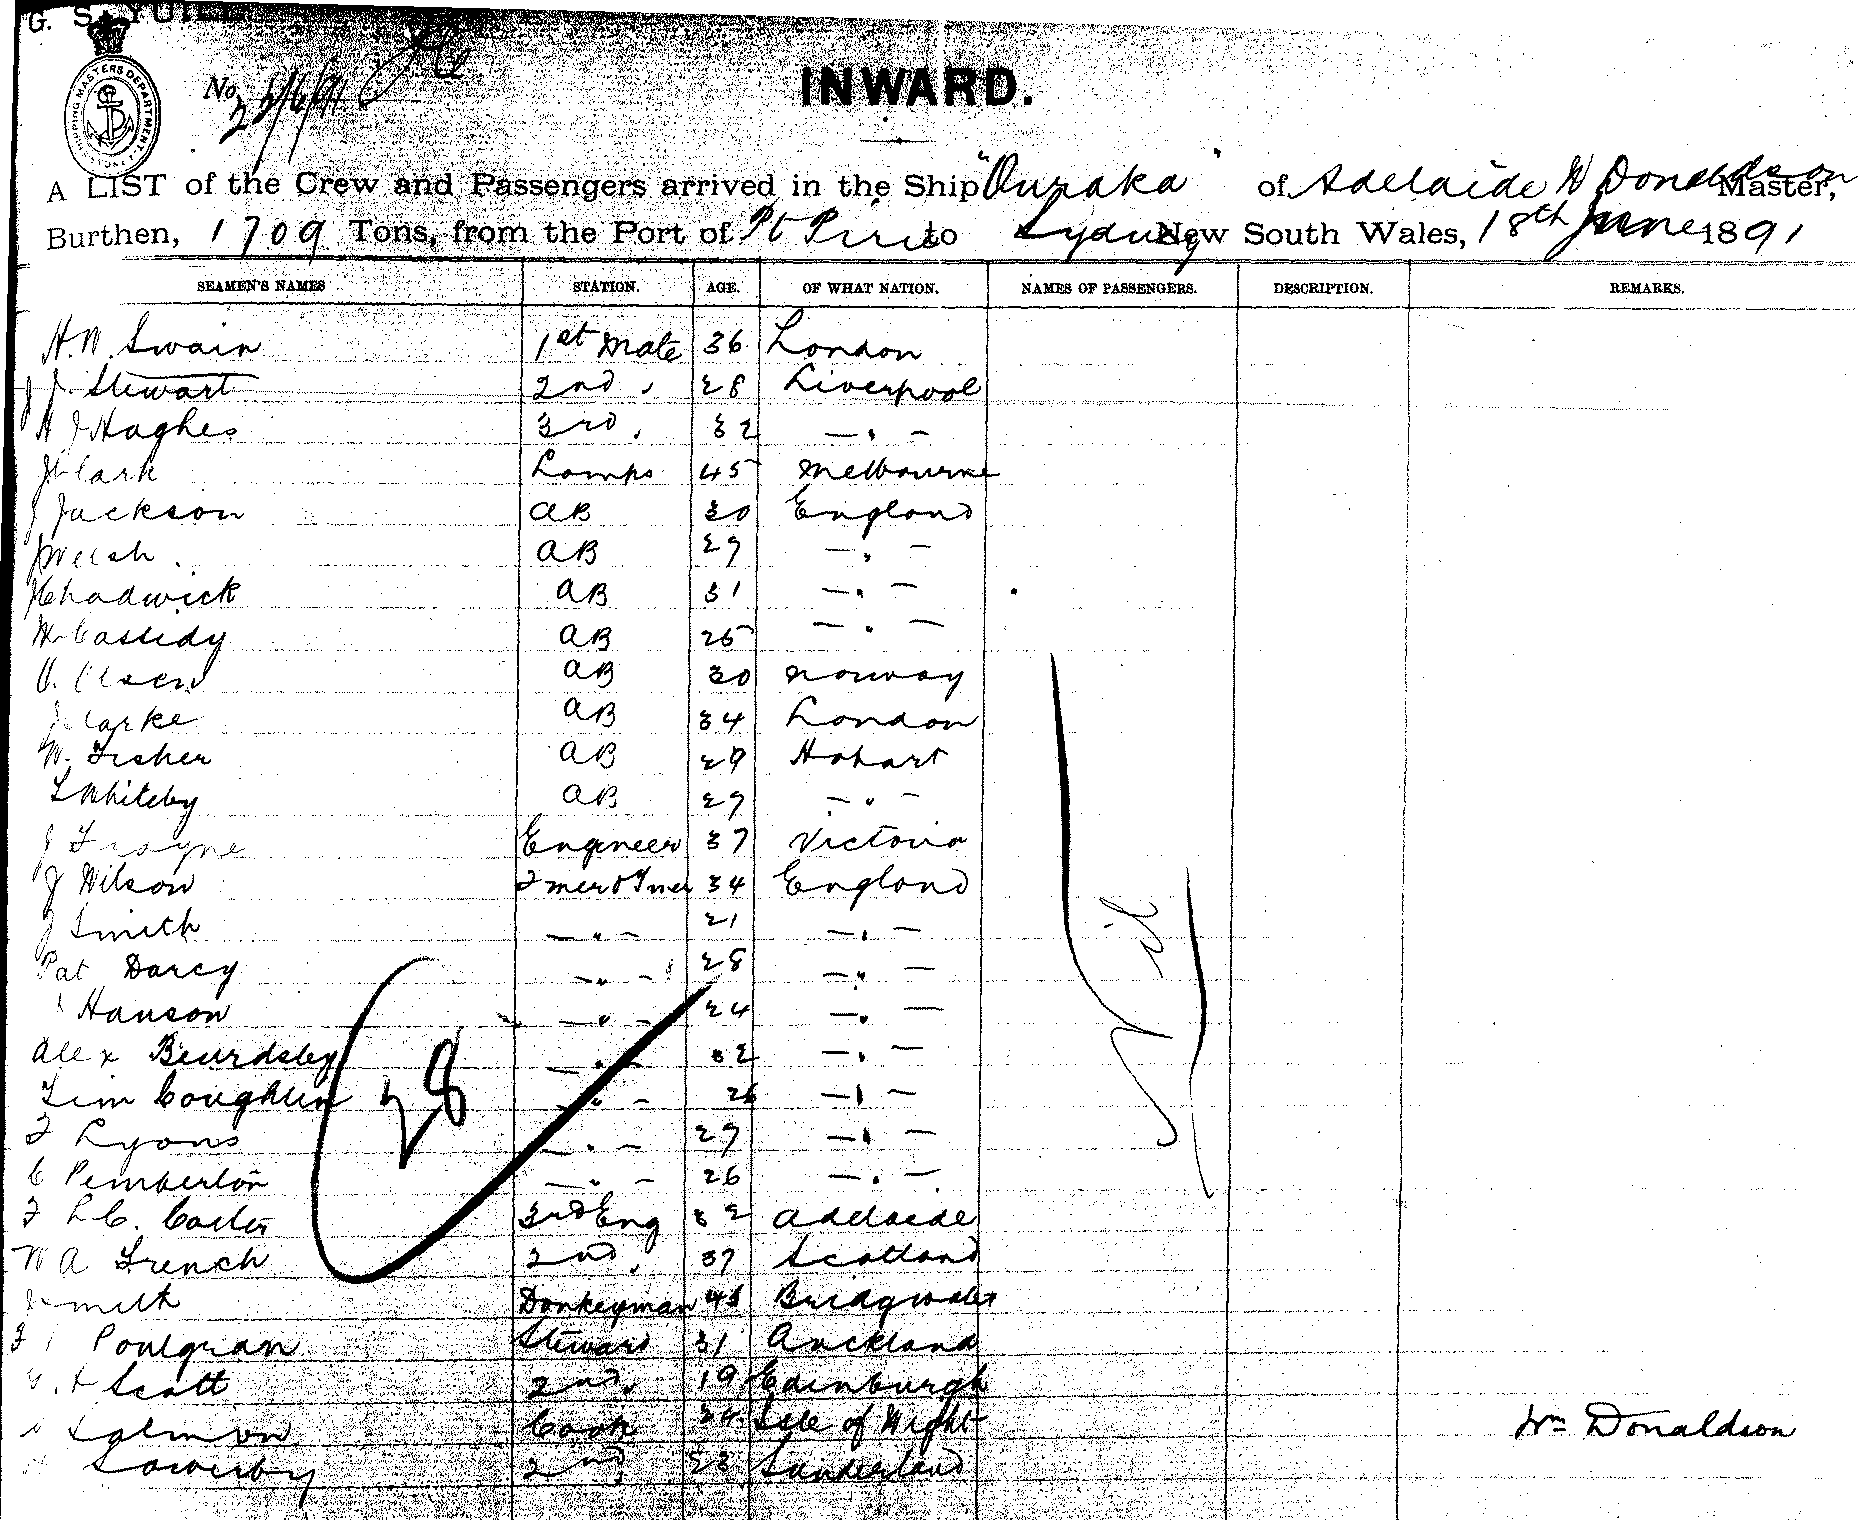 G. S. YUILL
SHIPPING MASTERS DEPARTMENT
No
INWARD.
A LIST of the Crew and Passengers arrived in the Ship "Ouraka" of Adelaide W Donaldson Master,
Burthen, 1709 Tons, from the Port of Pt Pirie to Sydney New South Wales, 18th June 1891
SEAMEN'S NAMES STATION. AGE. OF WHAT NATION. NAMES OF PASSENGERS. DESCRIPTION. REMARKS.
H. W. Swain 1st Mate 36 London
J. Stewart 2nd " 28 Liverpool
A J Hughes 3rd " 32 — " —
J Clark Lamps 45 Melbourne
J Jackson AB 30 England
J Welsh AB 27 — " —
J Chadwick AB 31 — " —
W Cassidy AB 25 — " —
O. Olsen AB 30 Norway
J Clarke AB 34 London
W. Fisher AB 29 Hobart
T Whiteby AB 27 — " —
J Trayne Engineer 37 Victoria
J Wilson Fmer & Tmer 34 England
J Smith — " — 21 — " —
Pat Darcy — " — 28 — " —
Hanson — " — 24 — " —
Alex Beurdsley — " — 32 — " —
Tim Coughlin — " — 26 — " —
F Lyons — " — 27 — " —
C Pemberton — " — 26 — " —
F L C. Carter 3rd Eng 32 Adelaide
W A French 2nd " 37 Scotland
J Smith Donkeyman 45 Bridgwater
F Poulgrain Steward 31 Auckland
Scott 2nd " 19 Edinburgh
Salmon Cook 34 Isle of Wight
Sowerby 2nd " 23 Sunderland
28
Nil
Wm Donaldson